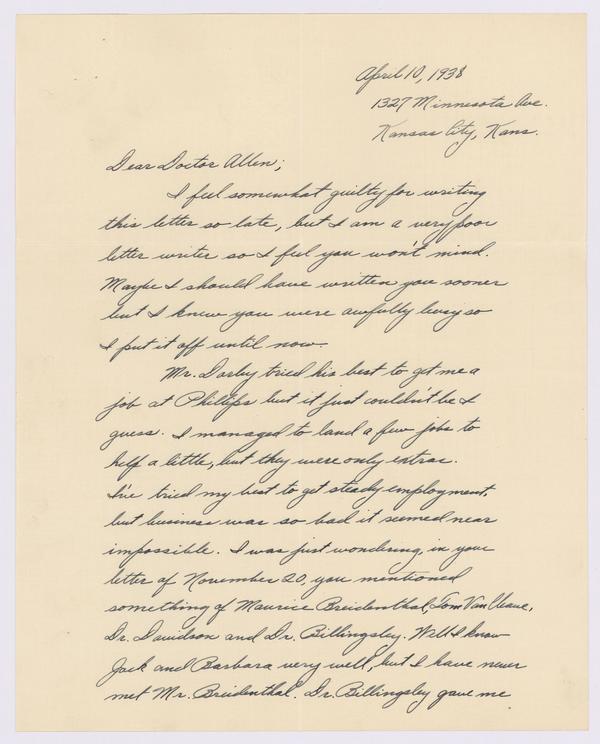 April 10, 1938
1327 Minnesota Ave.
Kansas City, Kans.
Dear Doctor Allen;
I feel somewhat guilty for writing
this letter so late, but I am a very poor
letter writer so I feel you won't mind.
Maybe I should have written you sooner
but I knew you were awfully busy so
I put it off until now.
Mr. Darby tried his best to get me a
job at Phillips but it just couldn't be I
guess. I managed to land a few jobs to
help a little, but they were only extras.
I've tried my best to get steady employment,
but business was so bad it seemed near
impossible. I was just wondering, in your
letter of November 20, you mentioned
something of Maurice Breidenthal, Tom Van Cleave,
Dr. Davidson and Dr. Billingsley. Well I know
Jack and Barbara very well, but I have never
met Mr. Breidenthal. Dr. Billingsley gave me